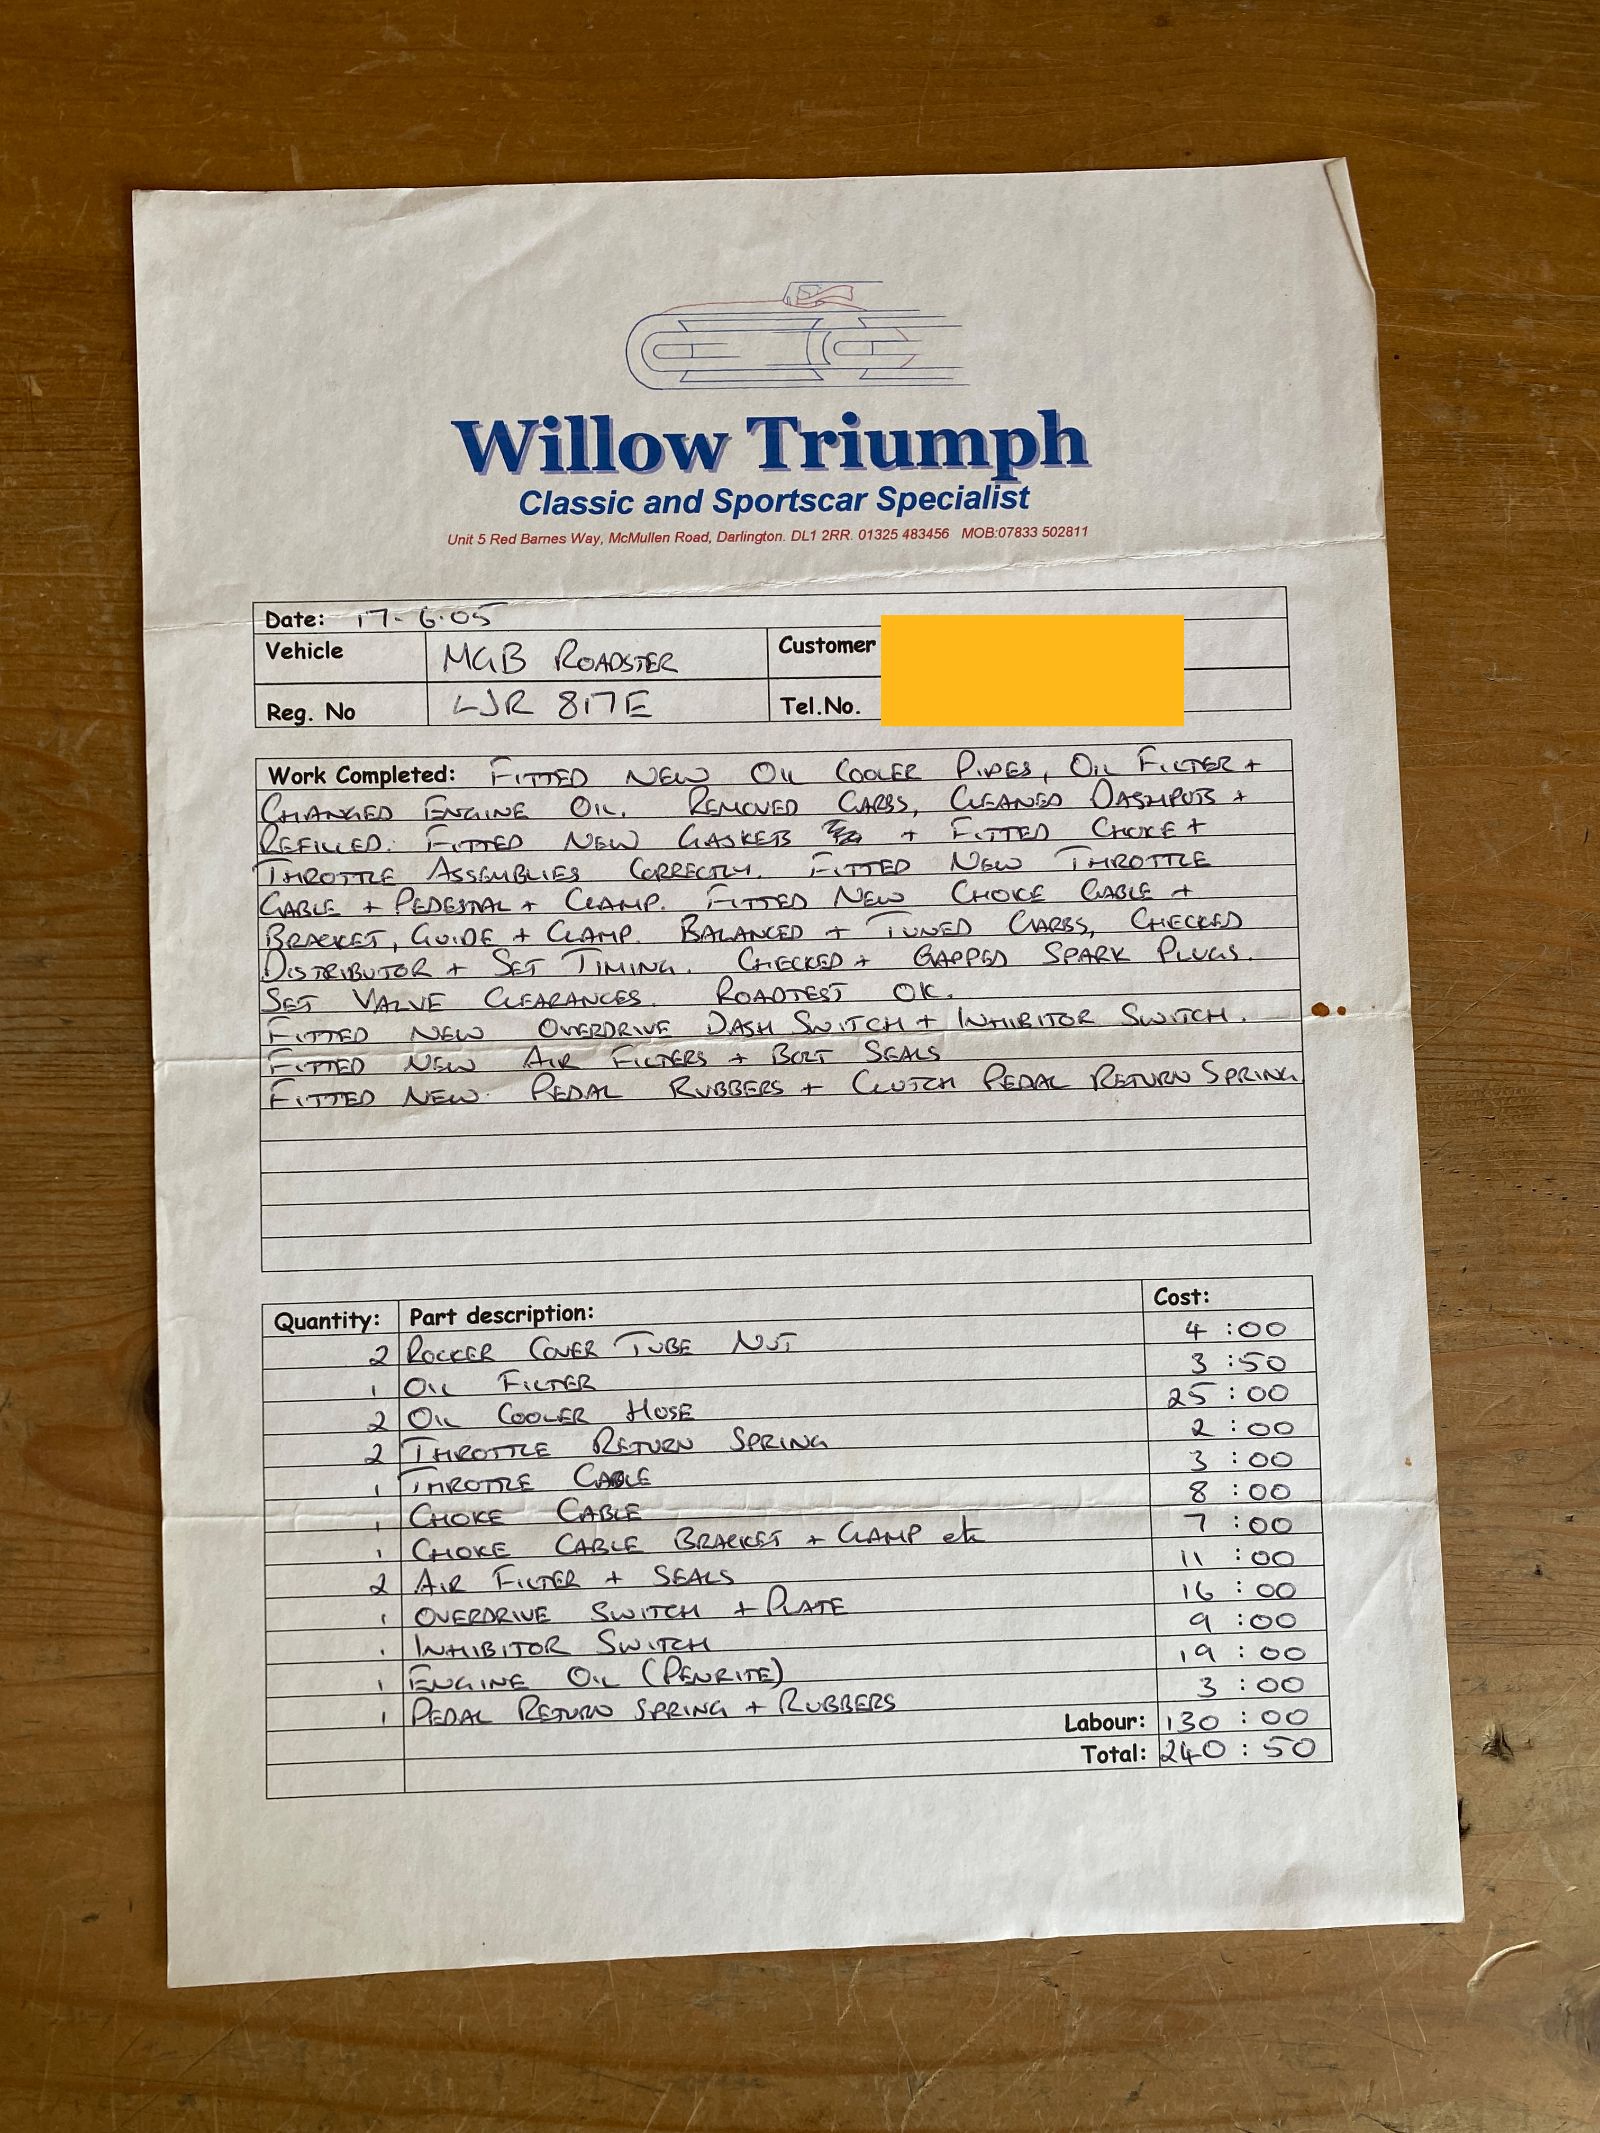 Willow Triumph
Classic and Sportscar Specialist
Unit 5 Red Barnes Way, McMullen Road, Darlington. DL1 2RR. 01325 483456 MOB:07833 502811
Date: 17-6-05
Vehicle MGB ROADSTER Customer
Reg. No LJR 817E Tel.No.
Work Completed: FITTED NEW OIL COOLER PIPES, OIL FILTER +
CHANGED ENGINE OIL. REMOVED CARBS, CLEANED DASHPOTS +
REFILLED. FITTED NEW GASKETS + FITTED CHOKE +
THROTTLE ASSEMBLIES CORRECTLY. FITTED NEW THROTTLE
CABLE + PEDESTAL + CLAMP. FITTED NEW CHOKE CABLE +
BRACKET, GUIDE + CLAMP. BALANCED + TUNED CARBS, CHECKED
DISTRIBUTOR + SET TIMING. CHECKED + GAPPED SPARK PLUGS.
SET VALVE CLEARANCES. ROADTEST OK.
FITTED NEW OVERDRIVE DASH SWITCH + INHIBITOR SWITCH.
FITTED NEW AIR FILTERS + BOLT SEALS
FITTED NEW PEDAL RUBBERS + CLUTCH PEDAL RETURN SPRING
Quantity: Part description: Cost:
2 ROCKER COVER TUBE NUT 4:00
1 OIL FILTER 3:50
2 OIL COOLER HOSE 25:00
2 THROTTLE RETURN SPRING 2:00
1 THROTTLE CABLE 3:00
1 CHOKE CABLE 8:00
1 CHOKE CABLE BRACKET + CLAMP etc 7:00
2 AIR FILTER + SEALS 11:00
1 OVERDRIVE SWITCH + PLATE 16:00
1 INHIBITOR SWITCH 9:00
1 ENGINE OIL (PENRITE) 19:00
1 PEDAL RETURN SPRING + RUBBERS 3:00
Labour: 130:00
Total: 240:50